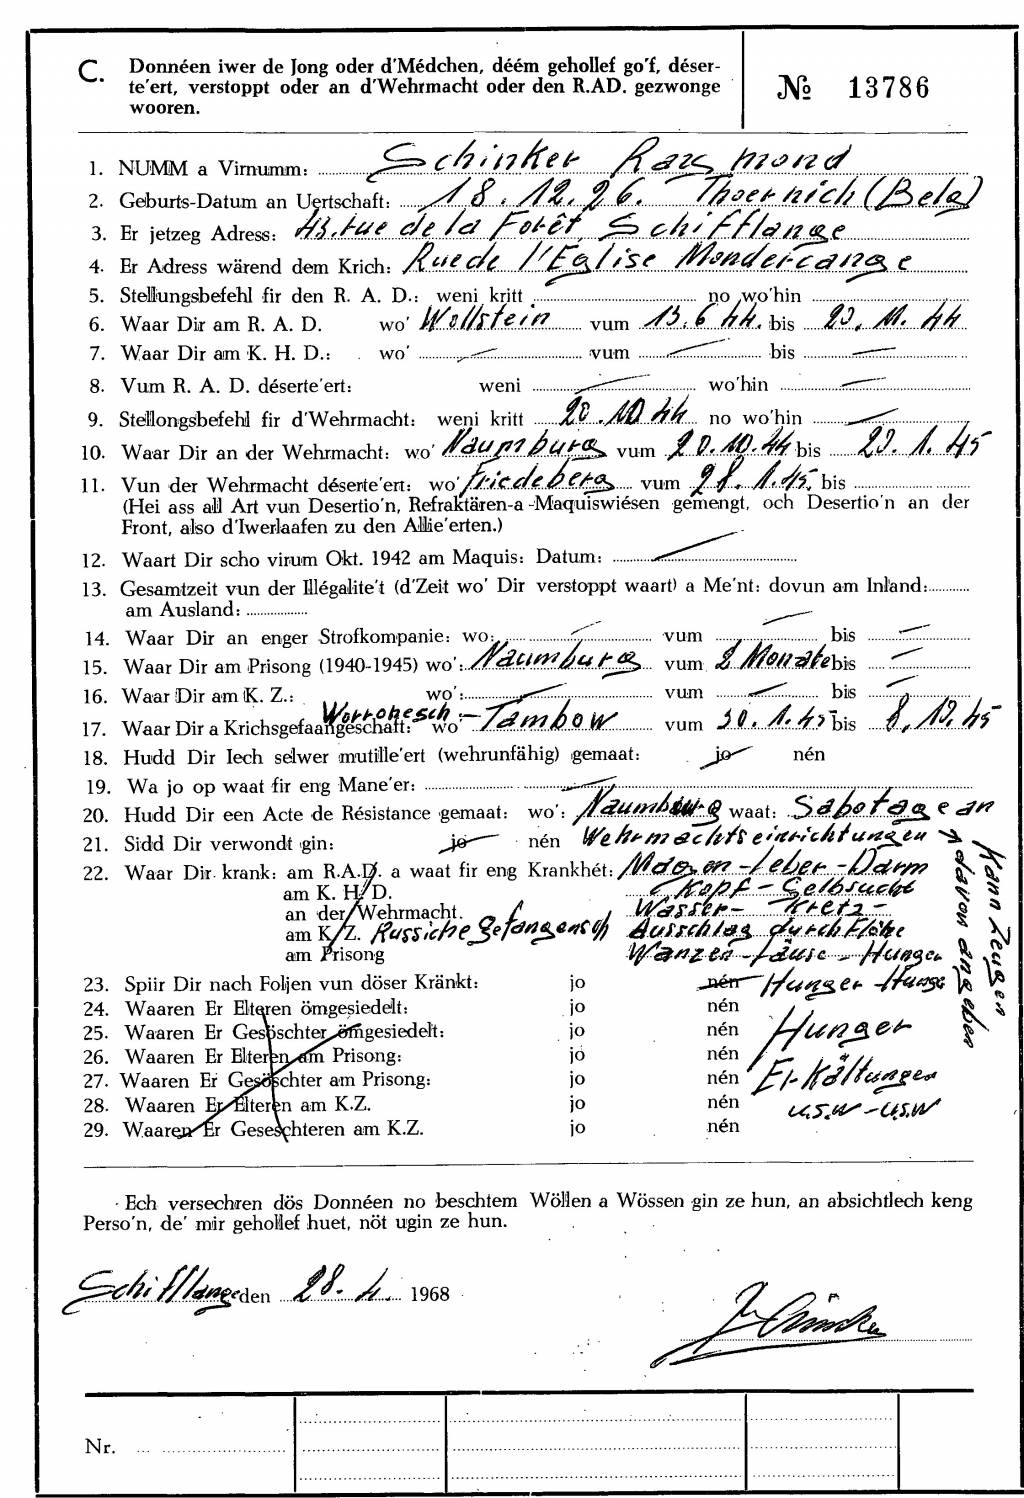 C. Donnéen iwer de Jong oder d'Médchen, déém gehollef go'f, déser-
te'ert, verstoppt oder an d'Wehrmacht oder den R.AD. gezwonge
wooren.
№ 13786
1. NUMM a Virnumm: Schinker Raymond
2. Geburts-Datum an Uertschaft: 18.12.26. Thoernich (Belg)
3. Er jetzeg Adress: 43. rue de la Forêt Schifflange
4. Er Adress wärend dem Krich: Rue de l'Eglise Mondercange
5. Stellungsbefehl fir den R. A. D.: weni kritt no wo'hin
6. Waar Dir am R. A. D. wo' Wollstein vum 13.6.44. bis 20.11.44
7. Waar Dir am K. H. D.: wo' — vum — bis —
8. Vum R. A. D. déserte'ert: weni — wo'hin —
9. Stellongsbefehl fir d'Wehrmacht: weni kritt 20.10.44 no wo'hin —
10. Waar Dir an der Wehrmacht: wo' Naumburg vum 20.10.44 bis 20.1.45
11. Vun der Wehrmacht déserte'ert: wo' Friedeberg vum 28.1.45. bis
(Hei ass all Art vun Desertio'n, Refraktären-a -Maquiswiésen gemengt, och Desertio'n an der
Front, also d'Iwerlaafen zu den Allie'erten.)
12. Waart Dir scho virum Okt. 1942 am Maquis: Datum: —
13. Gesamtzeit vun der Illégalite't (d'Zeit wo' Dir verstoppt waart) a Me'nt: dovun am Inland:
am Ausland:
14. Waar Dir an enger Strofkompanie: wo: — vum — bis —
15. Waar Dir am Prisong (1940-1945) wo': Naumburg vum 2 Monate bis —
16. Waar Dir am K. Z.: wo': — vum — bis —
17. Waar Dir a Krichsgefaangeschaft: wo' Worronesch:- Tambow vum 30.1.45 bis 8.10.45
18. Hudd Dir Iech selwer mutille'ert (wehrunfähig) gemaat: jo nén
19. Wa jo op waat fir eng Mane'er: —
20. Hudd Dir een Acte de Résistance gemaat: wo': Naumburg waat: Sabotage an
21. Sidd Dir verwondt gin: jo nén Wehrmachtseinrichtungen
Kann Zeugen
davon angeben
22. Waar Dir krank: am R.A.D. a waat fir eng Krankhét: Magen-Leber-Darm
am K. H. D. Kopf-Gelbsucht
an der Wehrmacht. Wasser- Kretz-
am K. Z. Russiche Gefangensch Ausschlag durch Flöhe
am Prisong Wanzen-Läuse-Hunger
23. Spiir Dir nach Foljen vun döser Kränkt: jo nén Hunger-Hunge
24. Waaren Er Elteren ömgesiedelt: jo nén
25. Waaren Er Gesöschter ömgesiedelt: jo nén Hunger
26. Waaren Er Elteren am Prisong: jo nén
27. Waaren Er Gesöschter am Prisong: jo nén Er-Kältungen
28. Waaren Er Elteren am K.Z. jo nén u.s.w-u.s.w
29. Waaren Er Geseschteren am K.Z. jo nén
Ech versechren dös Donnéen no beschtem Wöllen a Wössen gin ze hun, an absichtlech keng
Perso'n, de' mir gehollef huet, nöt ugin ze hun.
Schifflange den 28. 4. 1968
Nr.